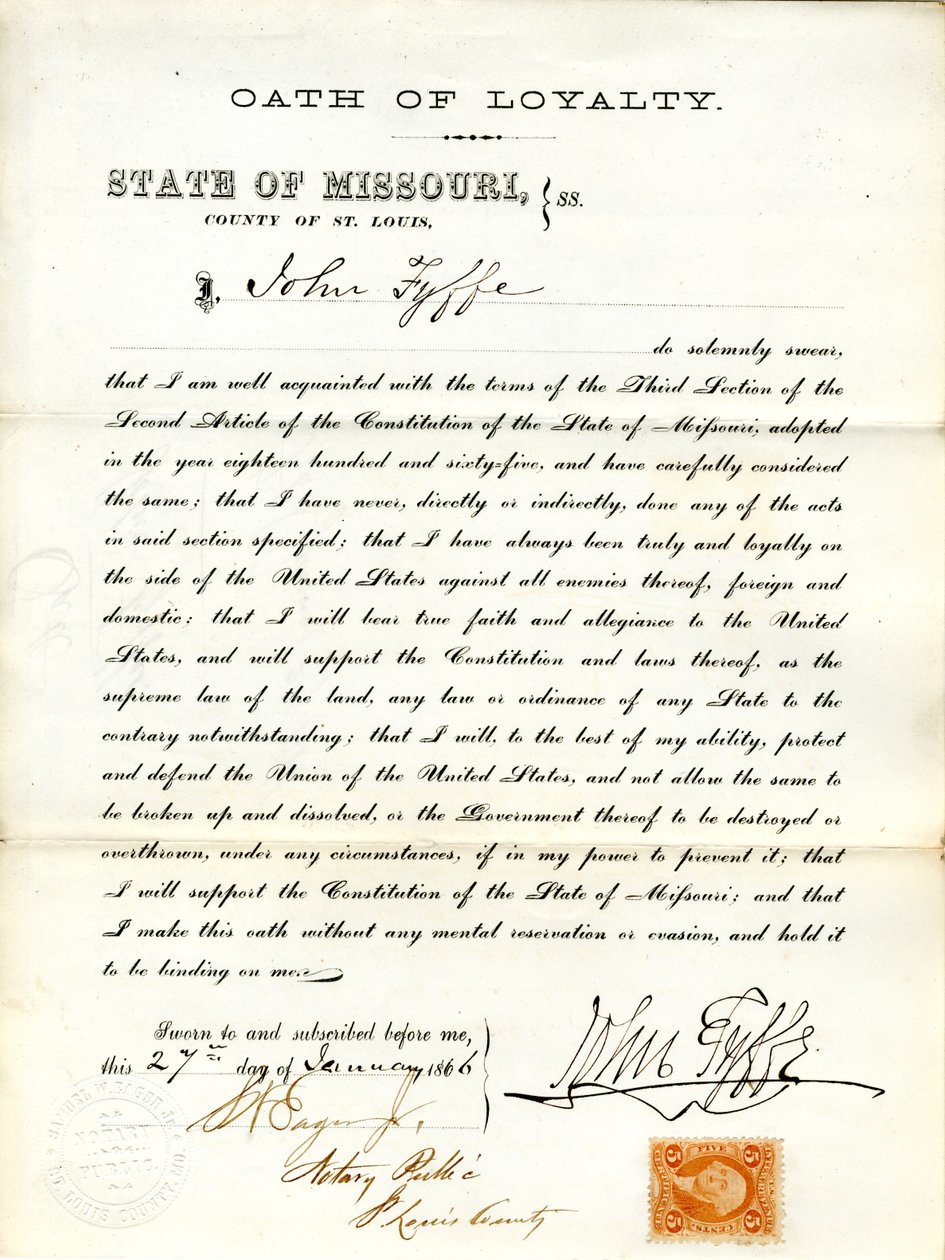 OATH OF LOYALTY.
STATE OF MISSOURI, } SS.
COUNTY OF ST. LOUIS,
I, John Fyffe
do solemnly swear,
that I am well acquainted with the terms of the Third Section of the
Second Article of the Constitution of the State of Miſsouri, adopted
in the year eighteen hundred and sixty=five, and have carefully considered
the same; that I have never, directly or indirectly, done any of the acts
in said section specified; that I have always been truly and loyally on
the side of the United States against all enemies thereof, foreign and
domestic: that I will bear true faith and allegiance to the United
States, and will support the Constitution and laws thereof, as the
supreme law of the land, any law or ordinance of any State to the
contrary notwithstanding; that I will, to the best of my ability, protect
and defend the Union of the United States, and not allow the same to
be broken up and dissolved, or the Government thereof to be destroyed or
overthrown, under any circumstances, if in my power to prevent it; that
I will support the Constitution of the State of Miſsouri; and that
I make this oath without any mental reservation or evasion, and hold it
to be binding on me.
Sworn to and subscribed before me,
this 27th day of January 1866
John Fyffe.
S W Eager Jr.
Notary Public
St Louis County
NOTARY
PUBLIC
ST. LOUIS COUNTY, MO.
5 FIVE 5
CERTIFICATE
INTER. REVENUE
5 CENTS. 5